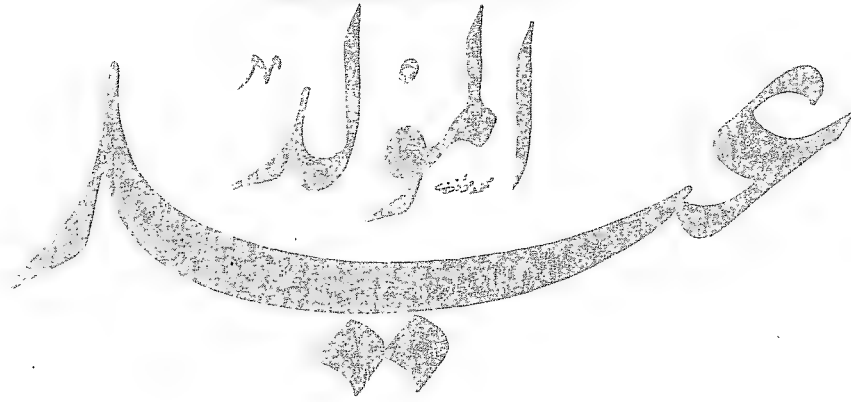 عيد
المولد